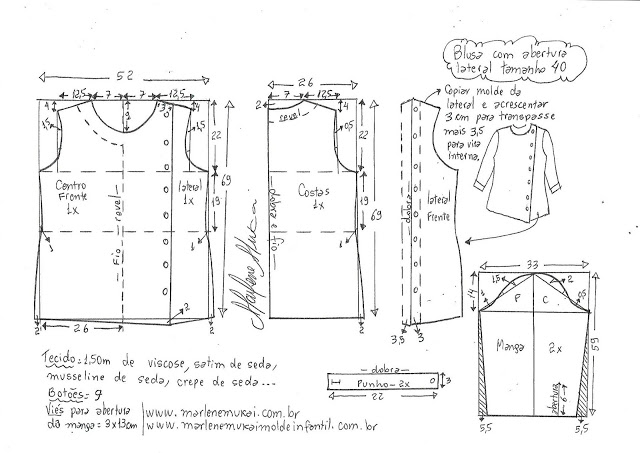 Blusa com abertura
lateral tamanho 40
Copiar molde da
lateral e acrescentar
3 cm para transpasse
mais 3,5
para vira
interna.
52
12,5
7
7
12,5
4
9
3
4
1,5
1,5
22
69
19
Centro
Frente
1x
lateral
1x
Fio
revel
1
1
2
2
2
26
26
2
7
12,5
4
revel
0,5
22
19
69
Costas
1x
1
2
Marlene Mukai
dobra
lateral
Frente
3,5
3
33
14
1,5
2
1
0,5
F
C
Manga
2x
59
abertura
6
5,5
5,5
dobra
Punho-2x
3
22
Tecido=1,50m de viscose, satim de seda,
musseline de seda, crepe de seda...
Botões=9
Viés para abertura
da manga=3x13cm
www.marlenemukai.com.br
www.marlenemukaimoldeinfantil.com.br